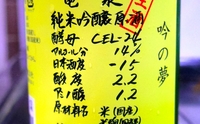 亀泉
純米吟醸原酒
酵母 CEL-24
アルコール分 14%
日本酒度 -15
酸度 2.2
アミノ酸 1.2
原材料名 米(国産)
吟の夢